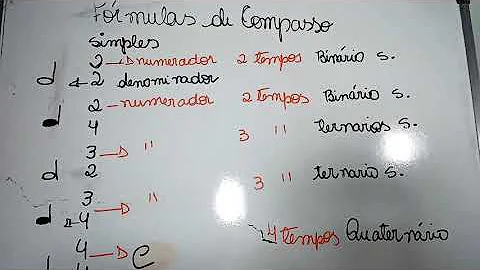 Fórmulas de Compasso
simples
2 numerador 2 tempos Binário s.
2 denominador
2 - numerador 2 tempos Binário s.
4
3 " 3 " ternarios s.
2
3 " 3 " ternario s.
4
4 C 4 tempos Quaternário
4